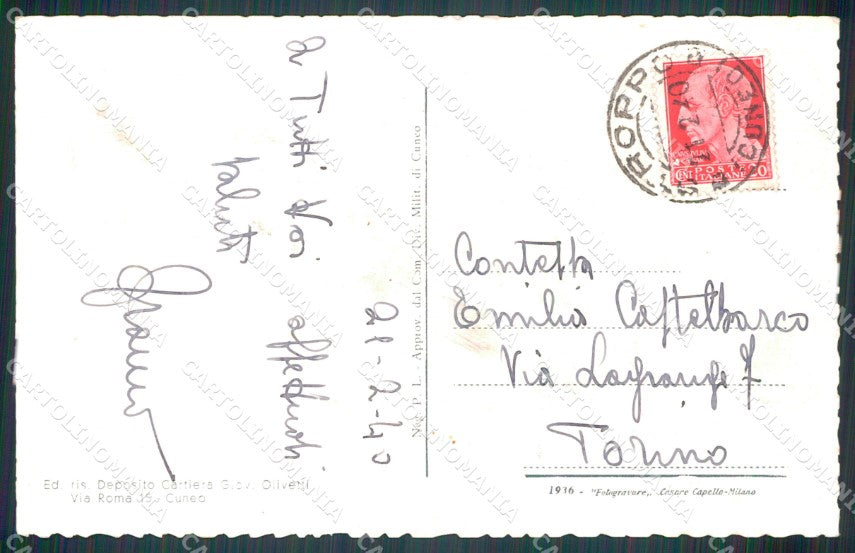 21-2-40
a Tutti Voi affettuosi
saluti
Contessa
Emilia Castelbarco
Via Lagrange 7
Torino
STROPPO (CUNEO)
21.2.40
POSTE
ITALIANE
CENT
20
P. I. - Approv. dal Com. Div. Milit. di Cuneo
Ed. ris. Deposito Cartiera Giov. Olivetti
Via Roma 15, Cuneo
1936 - "Fotogravure,, Cesare Capello-Milano
CARTOLINOMANIA